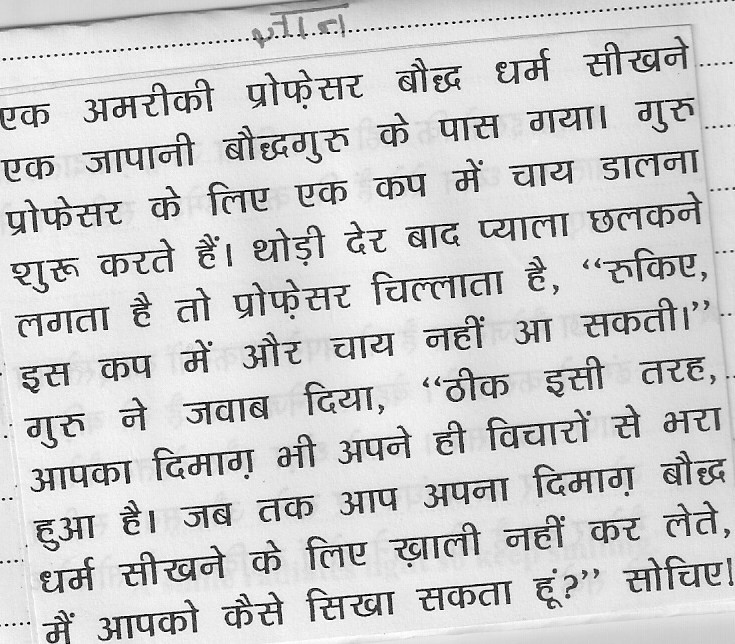 ज्ञान
एक अमरीकी प्रोफ़ेसर बौद्ध धर्म सीखने
एक जापानी बौद्धगुरु के पास गया। गुरु
प्रोफेसर के लिए एक कप में चाय डालना
शुरू करते हैं। थोड़ी देर बाद प्याला छलकने
लगता है तो प्रोफ़ेसर चिल्लाता है, “रुकिए,
इस कप में और चाय नहीं आ सकती।”
गुरू ने जवाब दिया, “ठीक इसी तरह,
आपका दिमाग़ भी अपने ही विचारों से भरा
हुआ है। जब तक आप अपना दिमाग़ बौद्ध
धर्म सीखने के लिए ख़ाली नहीं कर लेते,
मैं आपको कैसे सिखा सकता हूं?” सोचिए!